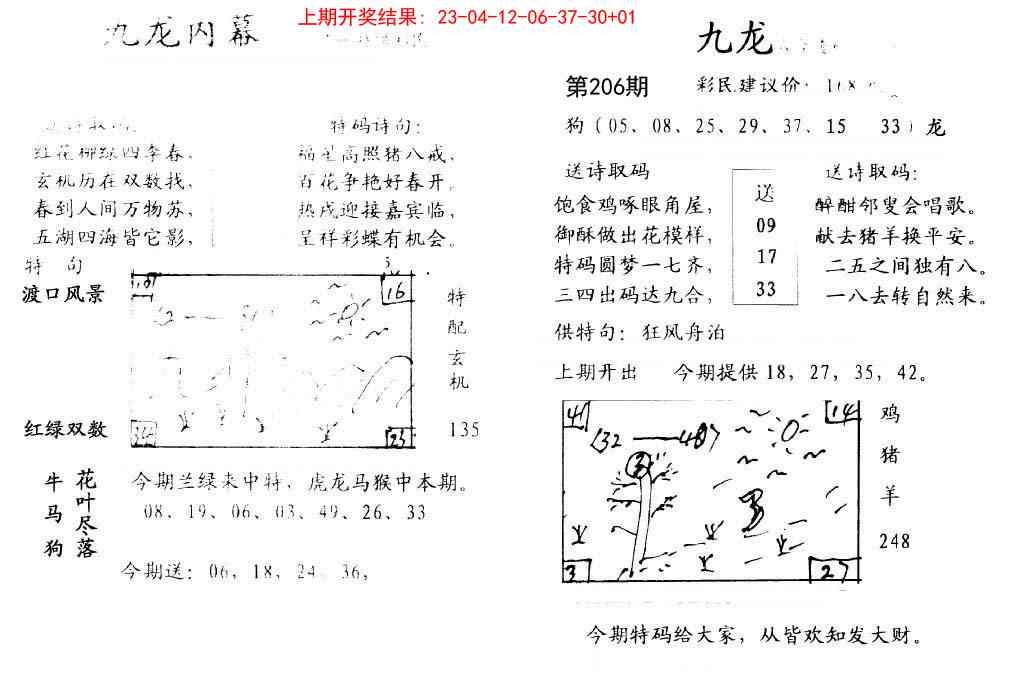 上期开奖结果：23-04-12-06-37-30+01
九龙内幕
特码诗句：
红花柳绿四季春，
福星高照猪八戒，
玄机历在双数找，
百花争艳好春开。
春到人间万物苏，
热戍迎接嘉宾临，
五湖四海皆它影，
呈祥彩蝶有机会。
特 句
渡口风景
16
特配玄机
红绿双数
23
135
牛马狗
花叶尽落
今期兰绿来中特，虎龙马猴中本期。
08、19、06、03、49、26、33
今期送：06，18，24，36，
九龙
第206期
彩民建议价：
狗（05、08、25、29、37、15 33）龙
送诗取码
饱食鸡啄眼角屋，
御酥做出花模样，
特码圆梦一七齐，
三四出码达九合，
送
09
17
33
送诗取码：
醉酣邻叟会唱歌。
献去猪羊换平安。
二五之间独有八。
一八去转自然来。
供特句：狂风舟泊
上期开出 今期提供18，27，35，42。
41
14
3
27
鸡
猪
羊
248
今期特码给大家，从皆欢知发大财。